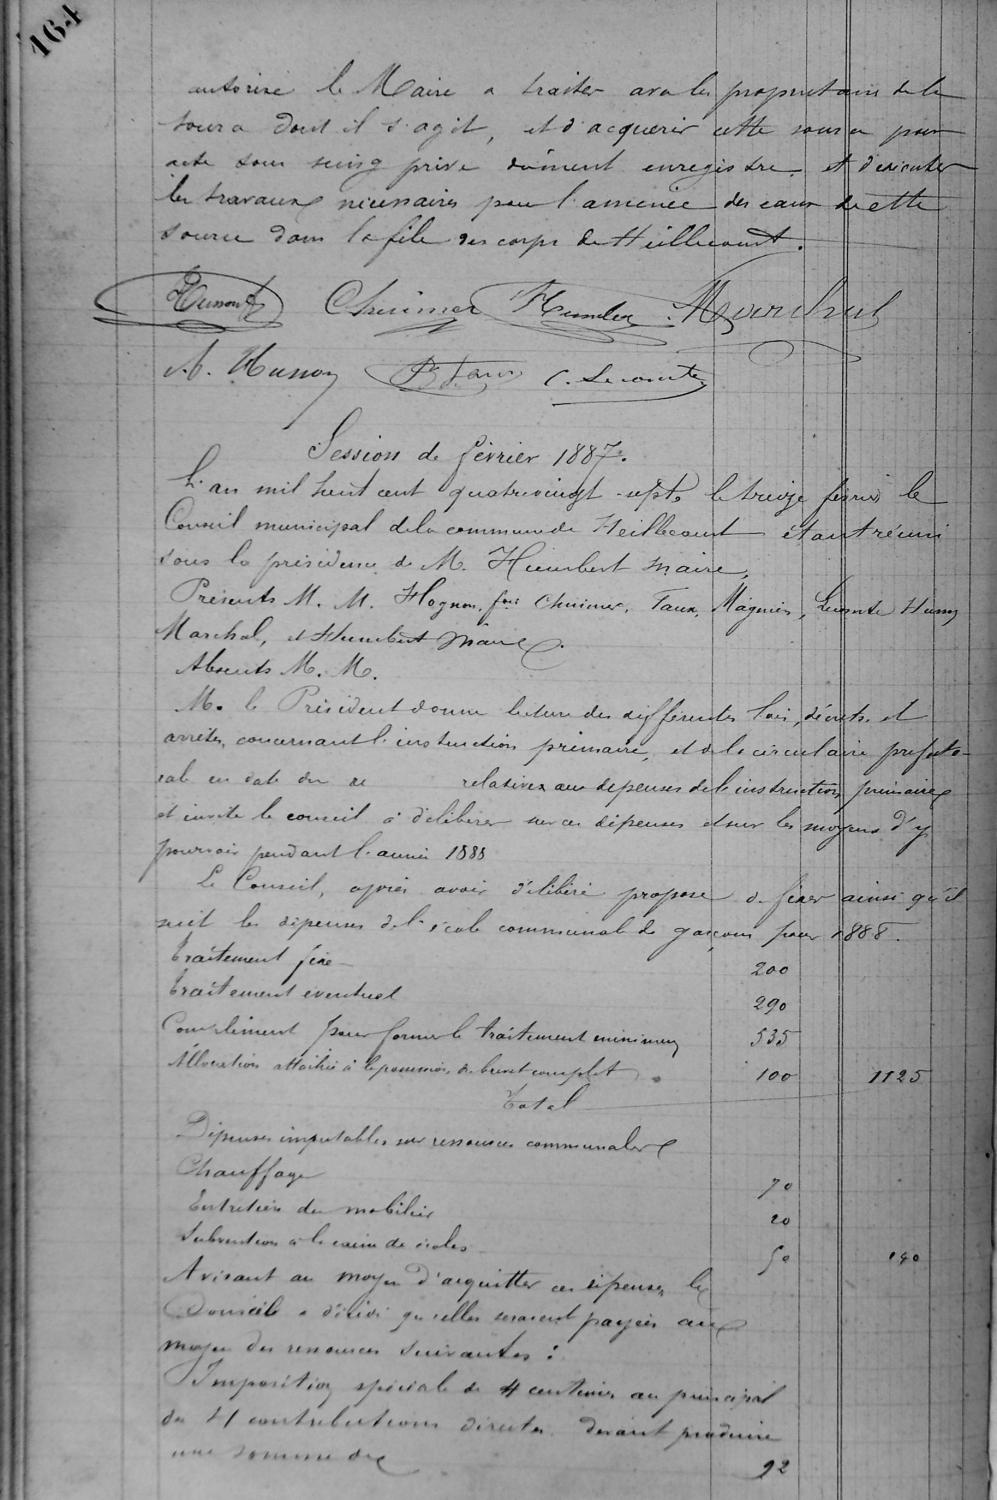 164
autorise le Maire a traiter avec les propriétaires de la
source dont il s'agit, et d'acquérir cette source par
acte sous seing privé dûment enregistré, et d'exécuter
les travaux nécessaires pour l'amenée des eaux de cette
source dans la file des corps de Heillecourt.
Chuimer Humbert Marchal
A. Husson C. Lecomte
Session de février 1887.
L'an mil huit cent quatrevingt-sept le treize février le
Conseil municipal de la commune de Heillecourt étant réuni
sous la présidence de M. Humbert maire,
Présents M. M. Hognon, Chuimer, Taux, Magnier, Lecomte Husson
Marchal, et Humbert Maire.
Absents M. M.
M. le Président donne lecture des différentes lois, décrets et
arrêtés, concernant l'instruction primaire, et de la circulaire préfecto-
rale en date du relatives aux dépenses de l'instruction primaire
et invite le conseil à délibérer sur ces dépenses et sur les moyens d'y
pourvoir pendant l'année 1888
Le Conseil, après avoir délibéré propose de fixer ainsi qu'il
suit les dépenses de l'école communale de garçons pour 1888.
Traitement fixe 200
Traitement éventuel 290
Complément pour former le traitement minimum 535
Allocation attachée à la possession du brevet complet 100 1125
Total
Dépenses imputables sur ressources communales
Chauffage 70
Entretien du mobilier 20
Subvention à la caisse des écoles 50 140
Avisant au moyen d'acquitter ces dépenses, le
Conseil a décidé qu'elles seraient payées au
moyen des ressources suivantes :
Imposition spéciale de 4 centimes au principal
des 4 contributions directes devant produire
une somme de 92